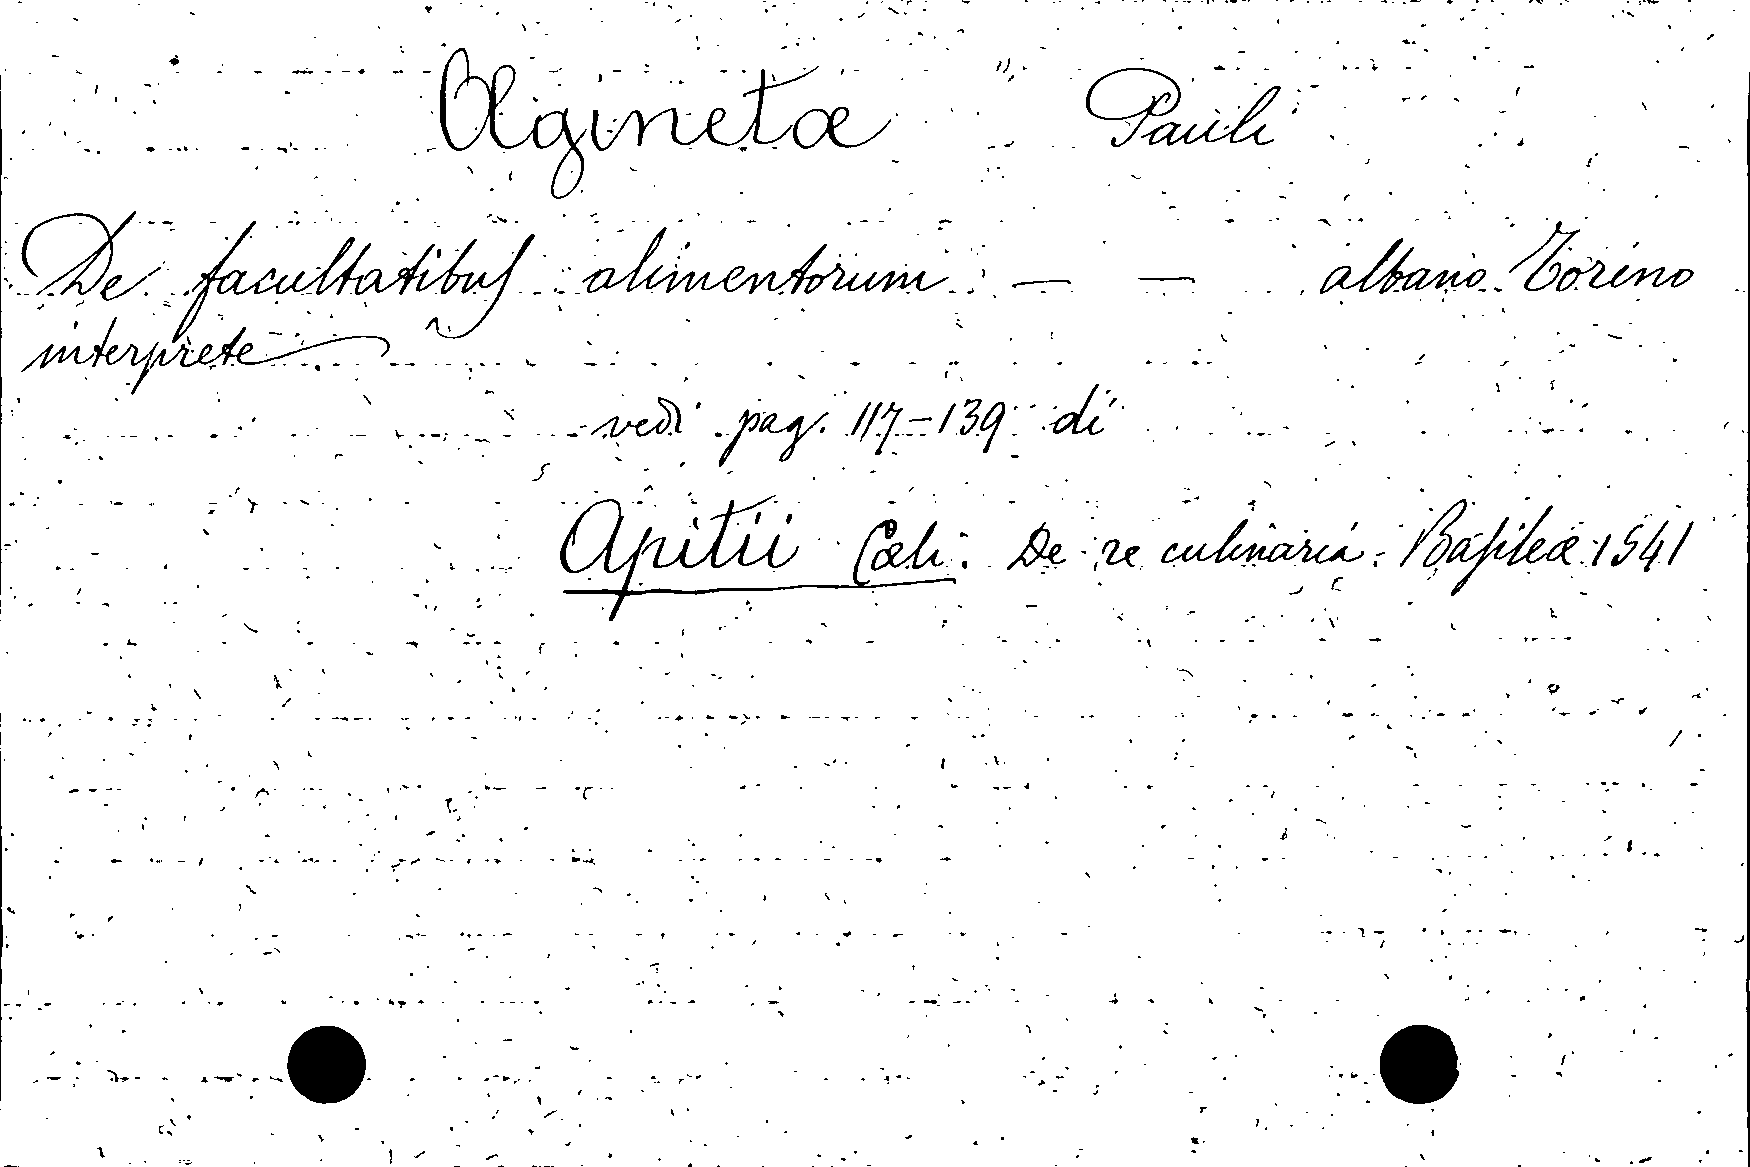 Aegineta Pauli
De facultatibus alimentorum — — albano Torino
interprete
vedi pag. 117-139 di
Apitii Cæli: De re culinaria. Basileæ 1541